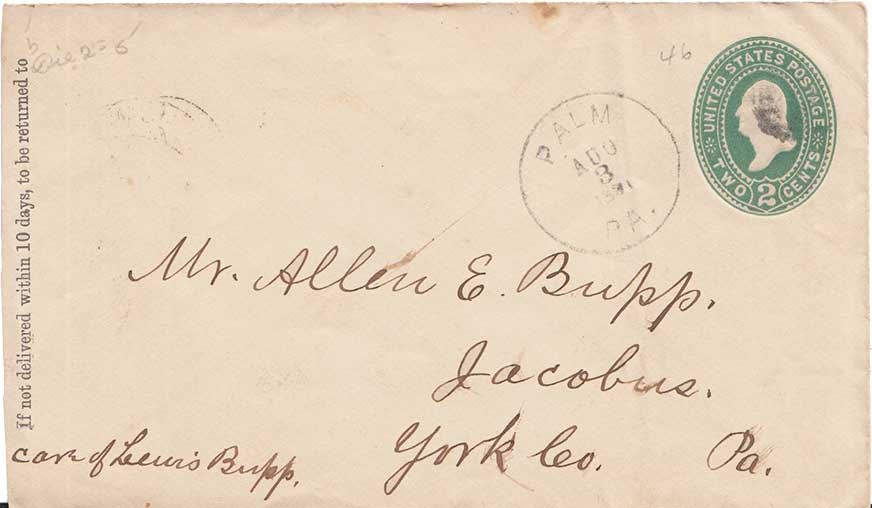 If not delivered within 10 days, to be returned to
46
UNITED STATES POSTAGE
TWO 2 CENTS
PALM
3
PA.
Mr. Allen E. Bupp.
Jacobus.
York Co. Pa.
care of Lewis Bupp.